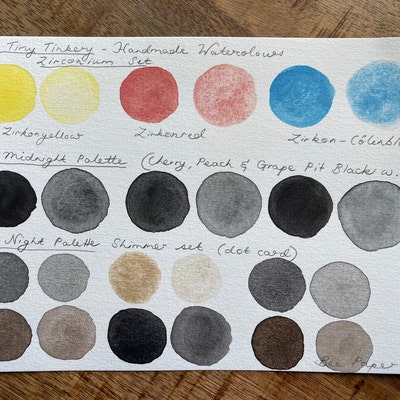 Tiny Tinkery - Handmade Watercolours
Zirconium Set
Zirkonyellow Zirkonred Zirkon-Cölinbl
Midnight Palette (Cherry, Peach & Grape Pit Black w.
Night Palette Shimmer set (dot card)
Bee Paper